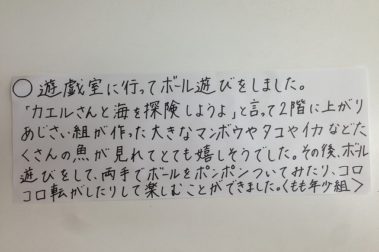 ○遊戯室に行ってボール遊びをしました。
「カエルさんと海を探険しようよ」と言って2階に上がり
あじさい組が作った大きなマンボウやタコやイカなどた
くさんの魚が見れてとても嬉しそうでした。その後、ボール
遊びをして、両手でボールをポンポンついてみたり、コロ
コロ転がしたりして楽しむことができました。〈もも年少組〉